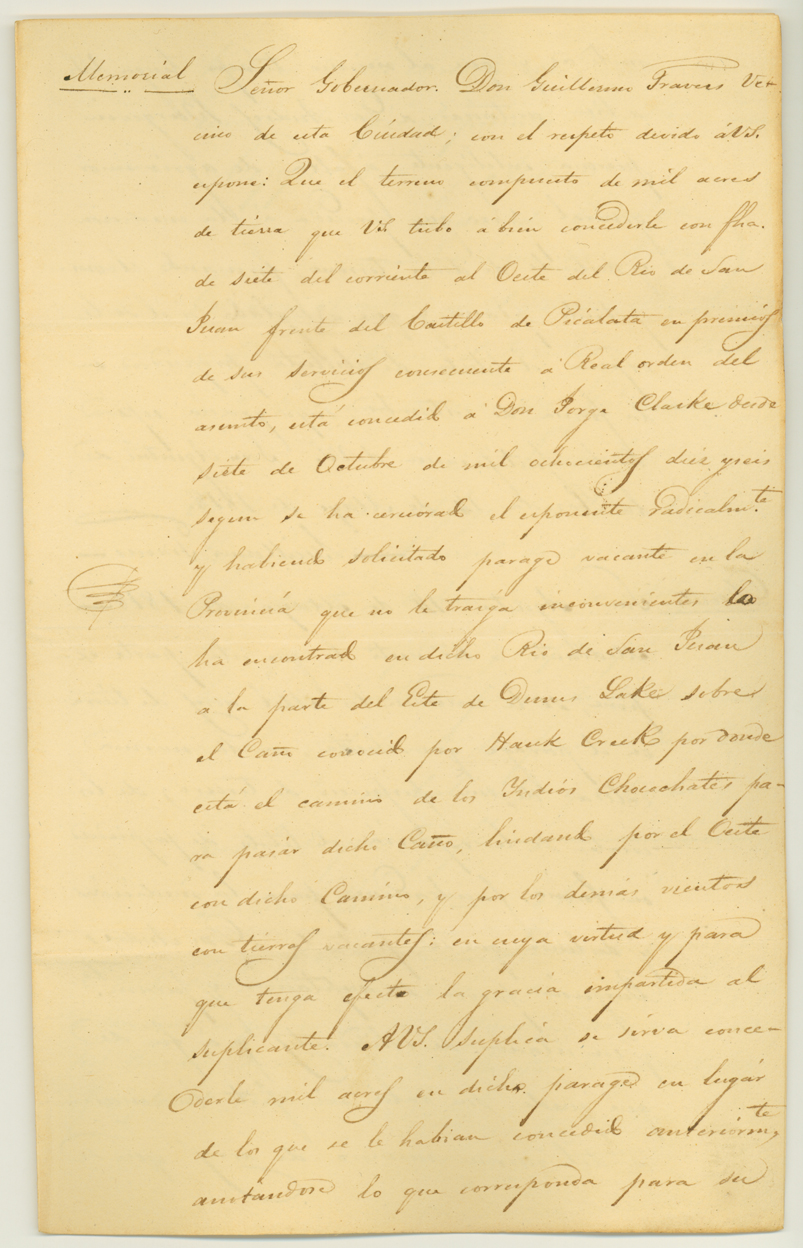 Memorial Señor Gobernador. Don Guillermo Travers Ve-
cino de esta Ciudad; con el respeto devido á VS.
espone: Que el terreno compuesto de mil acres
de tiérra que VS tubo á bién concederle con fha.
de siete del corriente al Oeste del Rio de San
Juan frente del Castillo de Picolata en premios
de sus servicios consecuente á Real orden del
asunto, está concedido á Don Jorge Clarke desde
siete de Octubre de mil ochocientos diez y seis
segun se ha cerciorado el esponente radicalmte.
y habiendo solicitado parage vacante en la
Provincia que no le traiga inconvenientes lo
ha encontrado en dicho Rio de San Juan
á la parte del Este de Dunns Lake sobre
el Caño conocido por Hauk Creek por donde
está el camino de los Yndios Chocochates pa-
ra pasár dicho Caño, lindando por el Oeste
con dicho Camino, y por los demás vientos
con tiérras vacantes: en cuya virtud y para
que tenga efecto la gracia impartida al
suplicante. A VS. suplica se sirva conce-
derle mil acres en dicho parage en lugár
de los que se le habian concedido anteriórmte,
anotandose lo que corresponda para su